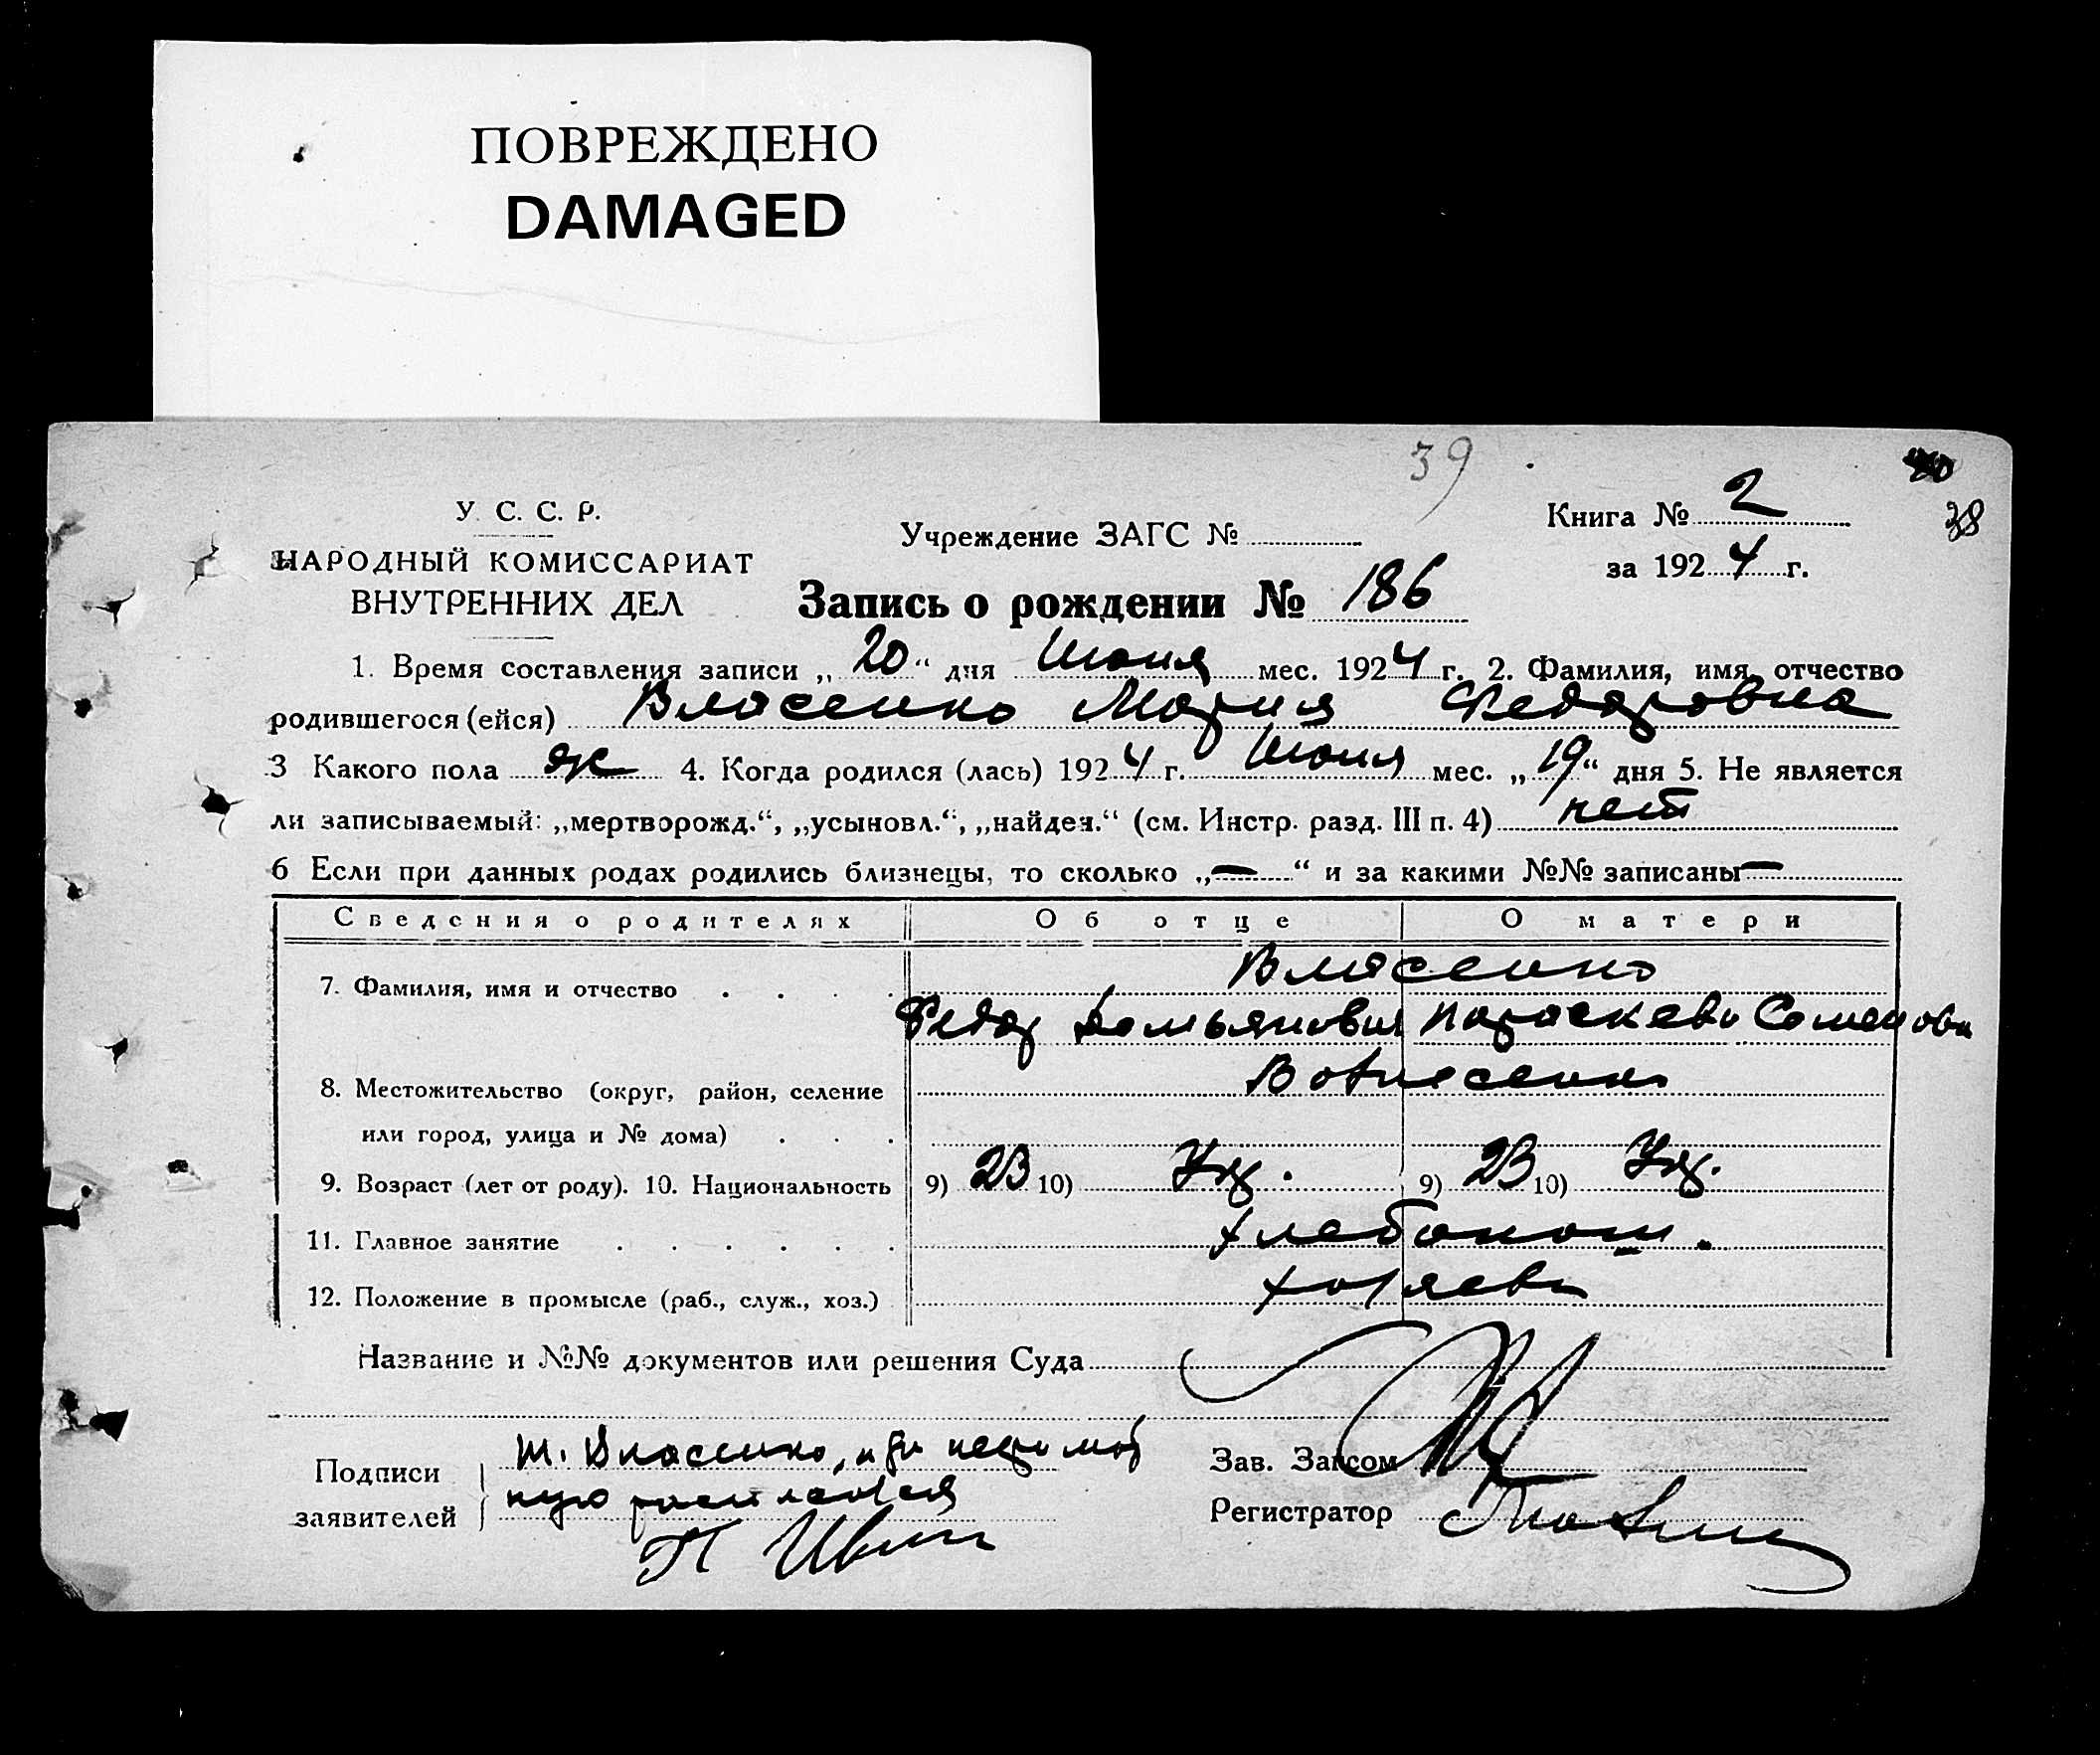 ПОВРЕЖДЕНО
DAMAGED
39
38
У. С. С. Р.
НАРОДНЫЙ КОМИССАРИАТ
ВНУТРЕННИХ ДЕЛ
Учреждение ЗАГС №
Книга № 2
за 1924 г.
Запись о рождении № 186
1. Время составления записи „20“ дня Июня мес. 1924 г. 2. Фамилия, имя, отчество
родившегося (ейся) Власенко Мария Федоровна
3 Какого пола ж 4. Когда родился (лась) 1924 г. Июня мес. „19“ дня 5. Не является
ли записываемый: „мертворожд.“, „усыновл.“, „найден.“ (см. Инстр. разд. III п. 4) нет
6 Если при данных родах родились близнецы, то сколько „—“ и за какими №№ записаны —
Сведения о родителях Об отце О матери
7. Фамилия, имя и отчество Власенко
Федор Домьянович Параскева Семенова
8. Местожительство (округ, район, селение
или город, улица и № дома)
9. Возраст (лет от роду). 10. Национальность 9) 23 10) Ук. 9) 23 10) Ук.
11. Главное занятие Хлебопаш.
12. Положение в промысле (раб., служ., хоз.) хозяева
Название и №№ документов или решения Суда
Подписи
заявителей
Власенко, а за неграмот
ную росписался
Зав. Загсом
Регистратор